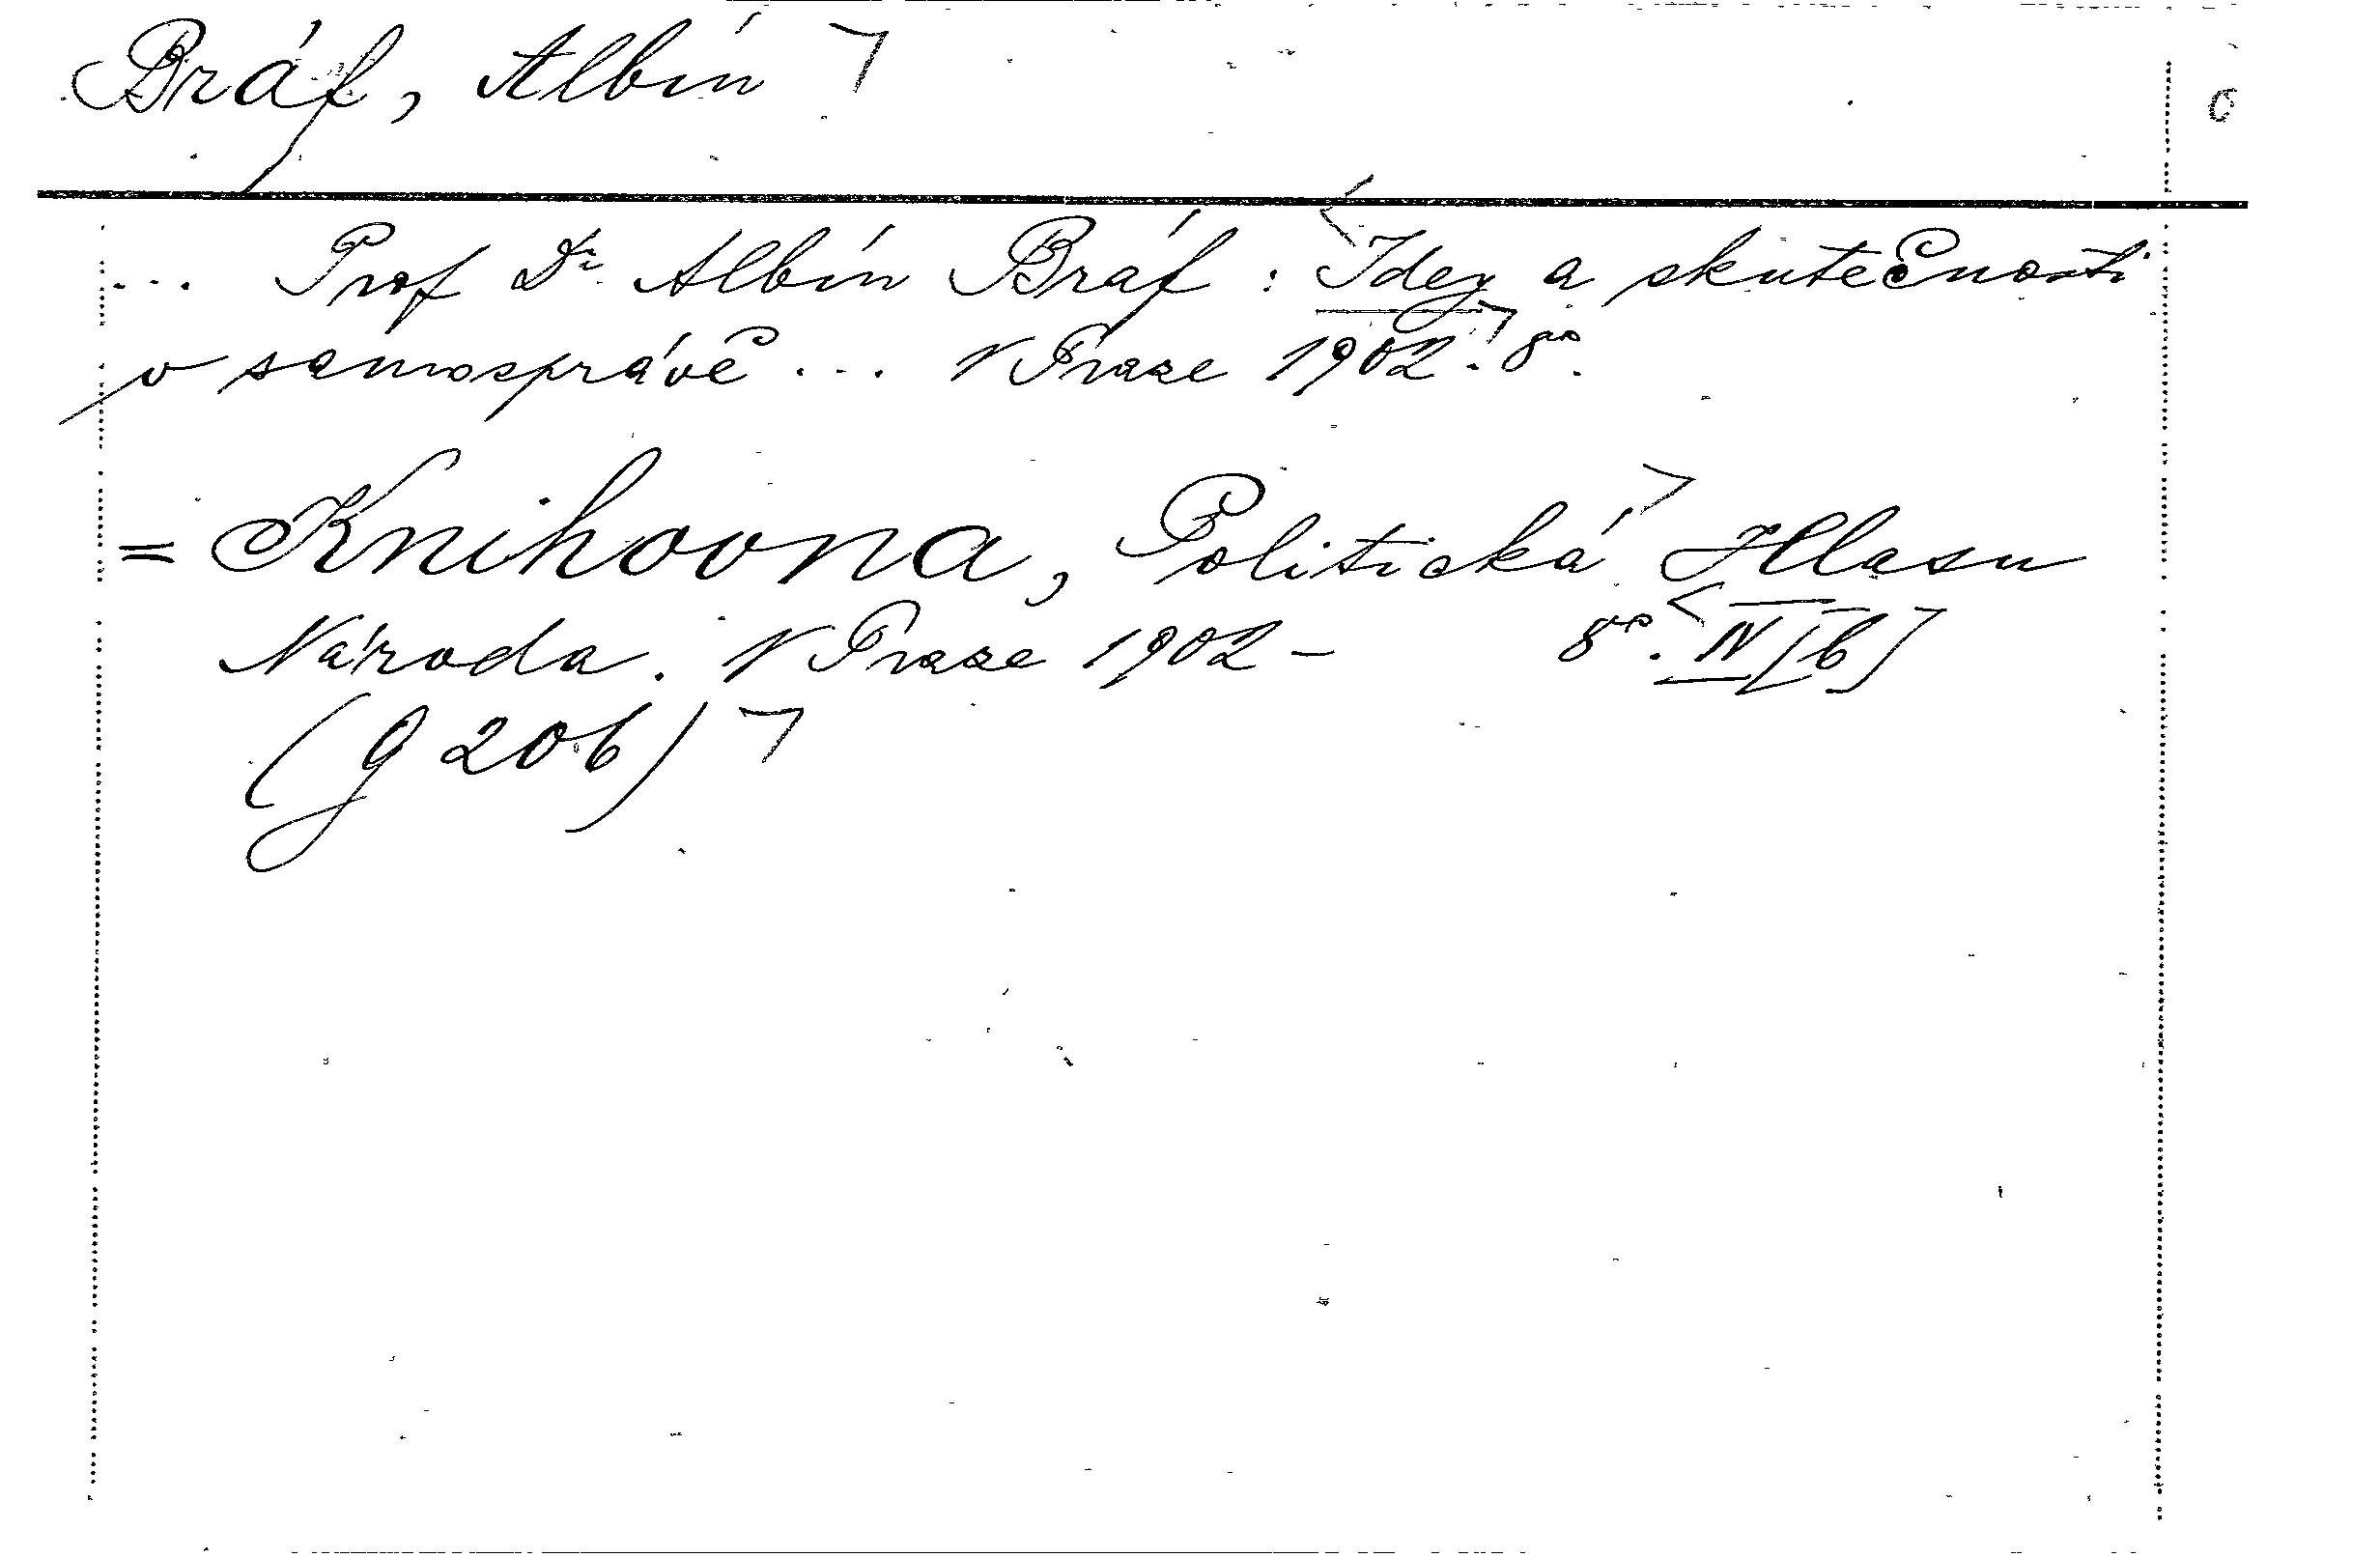 Bráf, Albín
... Prof Dr. Albín Bráf : Idey a skutečnosti
v samosprávě ... V Praze 1902. 8º.
= Knihovna, Politická Hlasu
Národa. V Praze 1902 – 8º. IV [b]
(g 206)